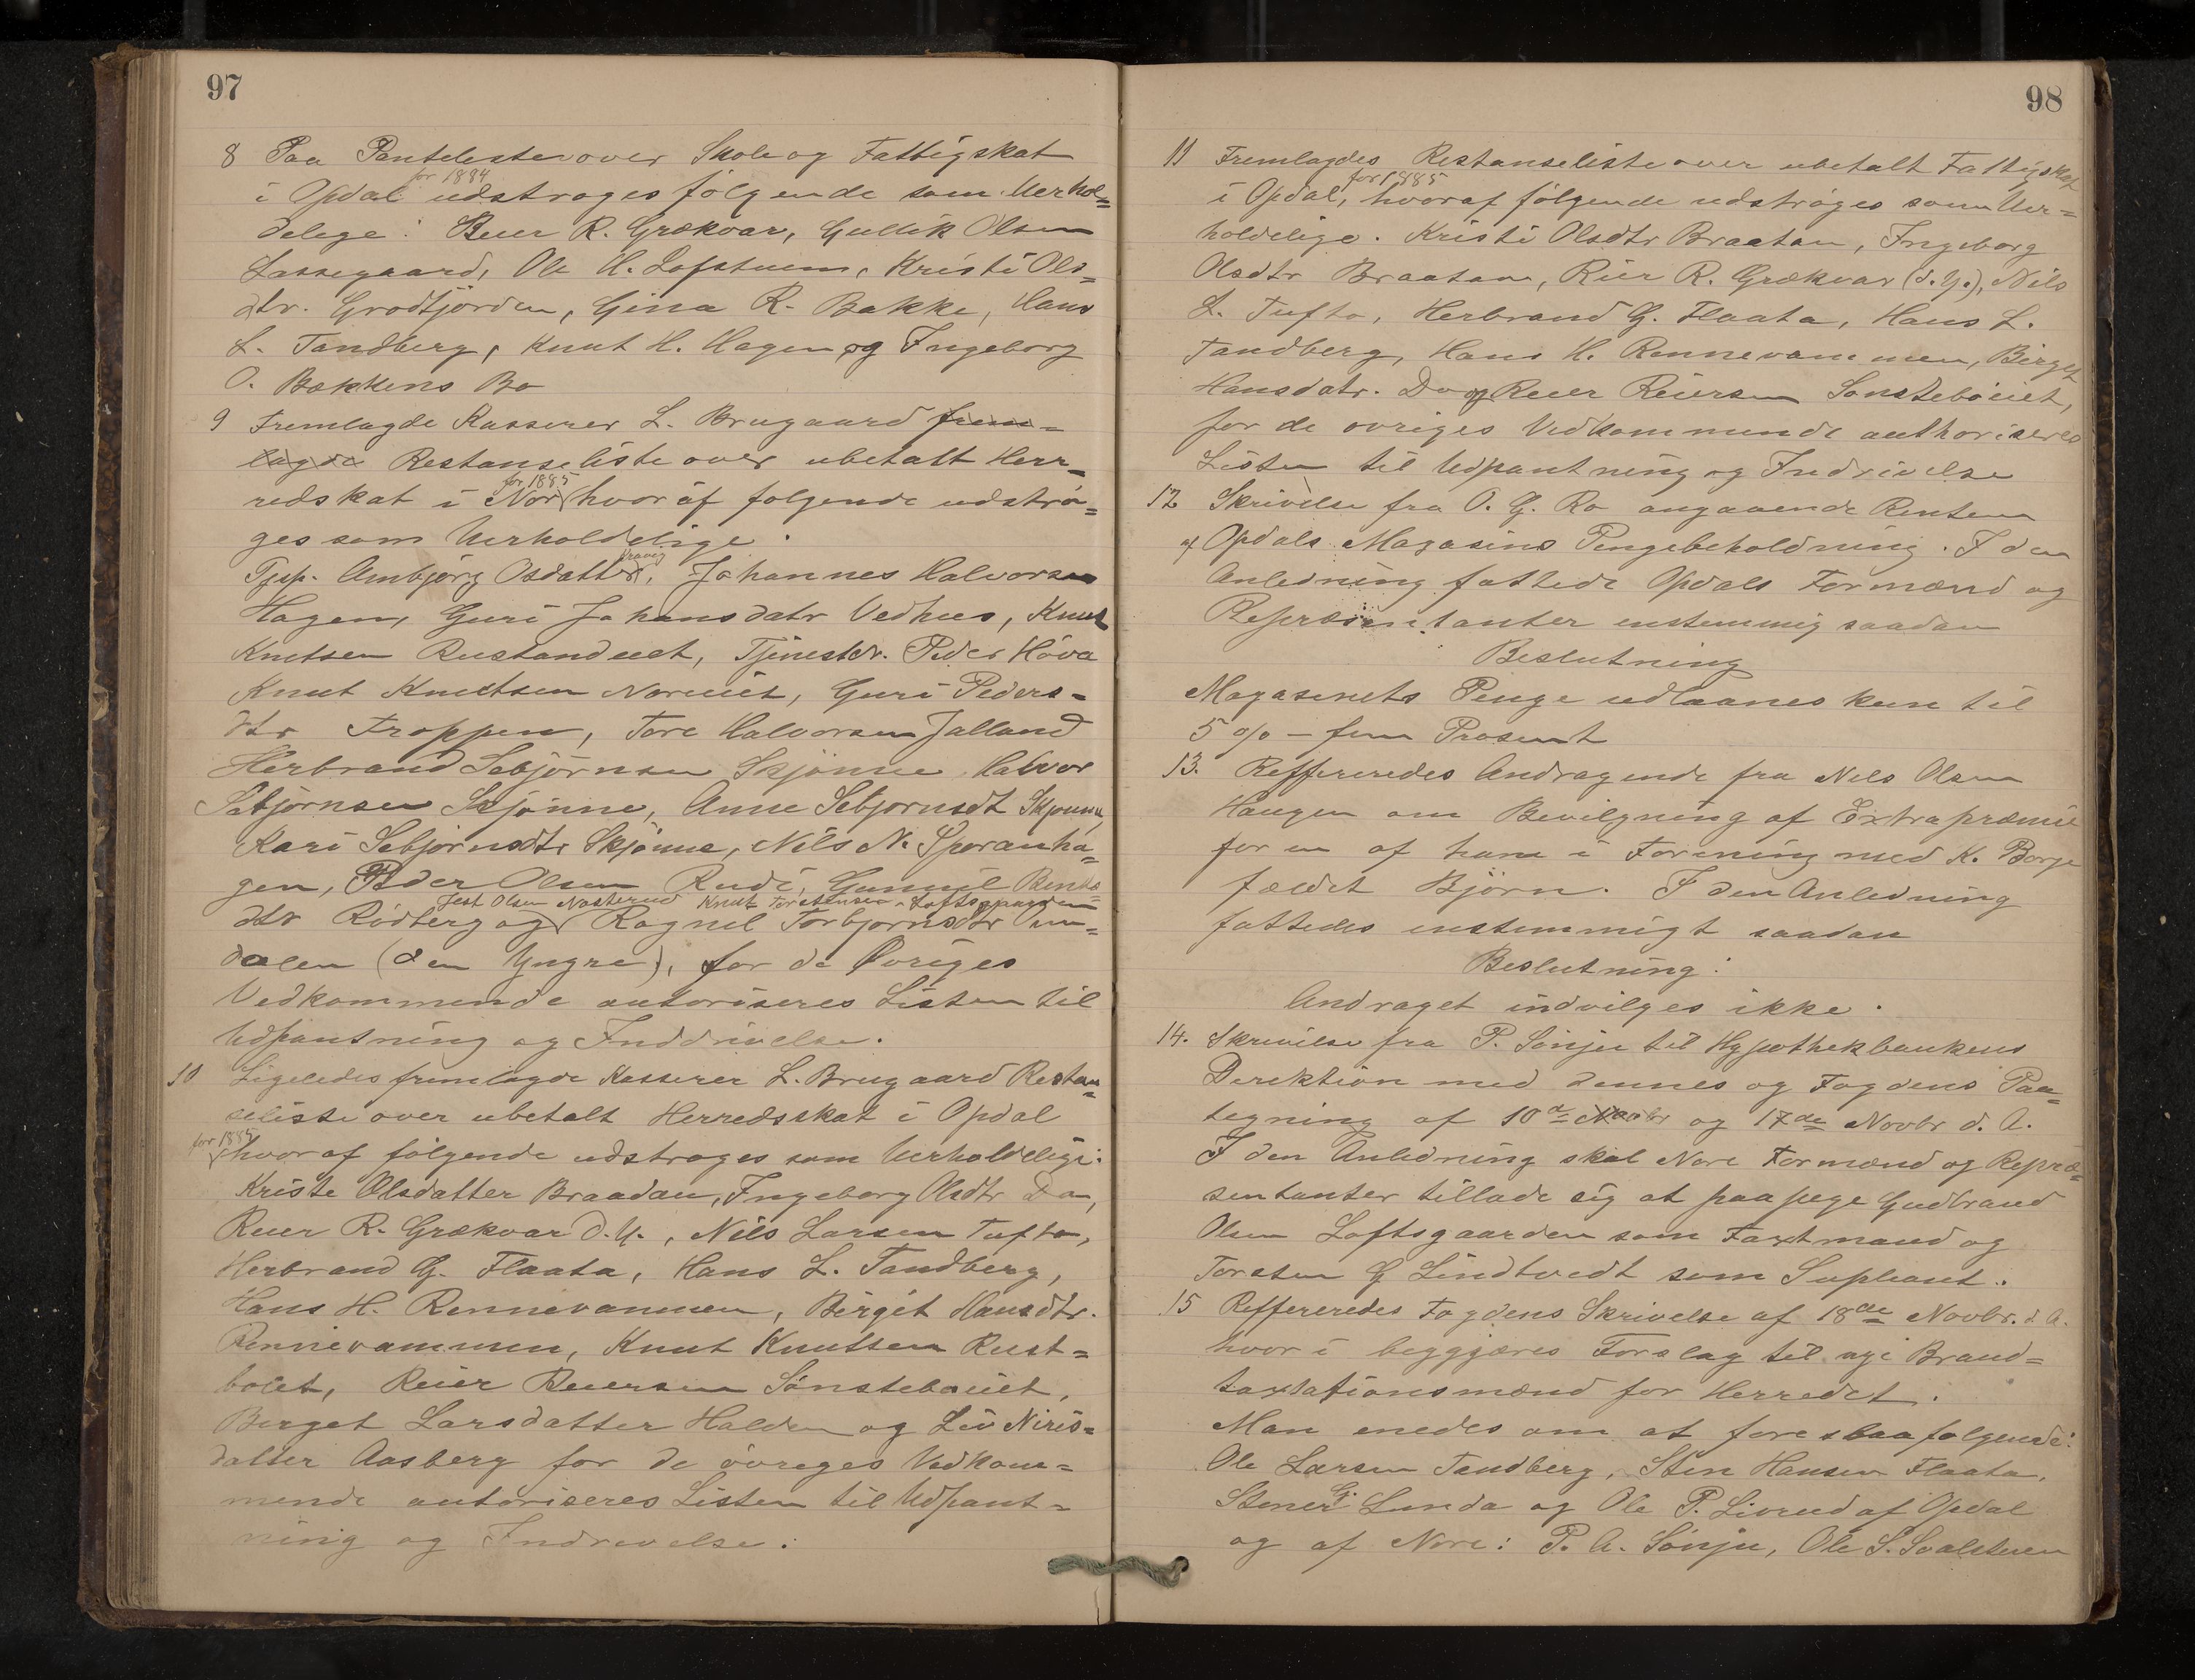 97
8 Paa Pantelisten over Skole og Fattigskat
for 1884
i Opdal udstroges følgende som Uerhol=
delige: Reier R. Grækvar, Gullik Olsen
Lassegaard, Ole H. Loftstuen, Kristi Ols=
dtr. Grodtjorden, Gina R. Bakke, Hans
L. Tandberg, Knut H. Hagen og Ingeborg
O. Bækkens Bo
9 Fremlagde Kasserer L. Brugaard frem=
lagde Restanseliste over ubetalt Herr=
for 1885
redskat i Nore hvoraf følgende udströ=
ges som Uerholdelige.
Kravig
Tjsp. Ambjörg Osdatter, Johannes Halvorsen
Hagen, Guri Johansdatr Vedhus, Knut
Knutsen Rustanduet, Tjinestdr. Peder Hôva
Knut Knudtsen Noruiet, Guri Peders=
dtr Froppen, Tore Halvorsen Jalland
Herbrand Sebjörnsen Skjönne, Halvor
Sebjörnsen Skjönne, Anne Sebjornsdt Skjonne,
Kari Sebjörnsdtr Skjönne, Nils N. Sporanha=
gen, Peder Olsen Rudi, Gunnil Bends=
Jest Olsen Nosterud Knut Torstensen Loftsgaarden
dtr Rödberg og Ragnil Torbjornsdtr Om=
dalen (den Yngre), for de Øvriges
Vedkommende autoriseres Listen til
Udpantning og Inddrivelse.
10 Ligeledes fremlagde Kasserer L. Brugaard Restan=
seliste over ubetalt Herredsskat i Opdal
for 1885
hvoraf følgende udstroges som Uerholdelige:
Kriste Olsdatter Braadan, Ingeborg Olsdtr Do,
Reier R. Grækvar d. Y., Nils Larsen Tufto,
Herbrand G. Flaata, Hans L. Tandberg,
Hans H. Rennevammen, Birgit Hansdtr.
Rennevammen, Knut Knutsen Rust=
bölet, Reier Reiersen Sönsteböuiet,
Birget Larsdatter Halden og Liv Niris=
datter Aasberg for de övriges Vedkom=
mende autoriseres Listen til Udpant=
ning og Indrivelse.
98
11 Fremlagdes Restanseliste over ubetalt Fattigskat
for 1885
i Opdal, hvoraf følgende udströges som Uer=
holdelige. Kristi Olsdtr Braatan, Ingeborg
Olsdtr Braatan, Reier R. Grækvar (d. Y.), Nils
L. Tufto, Herbrand G. Flaata, Hans L.
Tandberg, Hans H. Rennevammen, Birget
Hansdatr. Do og Reier Reiersen Sønstebøuiet,
for de ovriges Vedkommende authoriseres
Listen til Udpantning og Indrivelse
12 Skrivelse fra O. G. Ro angaaende Renten
af Opdals Magasins Pengebeholdning. I den
Anledning fattede Opdals Formænd og
Repræsentanter enstemmig saadan
Beslutning
Magasinets Penge udlaanes kun til
5 % – fem Prosent
13. Reffereredes Andragende fra Nils Olsen
Haugen om Bevilgning af Extrapræmie
for en af ham i Forening med K. Borge
fældet Björn. I den Anledning
fattedes enstemmigt saadan
Beslutning:
Andraget indvilges ikke.
14. Skrivelse fra P. Sönju til Hypothekbankens
Direktion med dennes og Fogdens Paa=
tegning af 10de Novbr og 17de Novbr d. A.
I den Anledning skal Nore Formænd og Repræ=
sentanter tillade sig at paapege Gudbrand
Olsen Loftsgaarden som Taxtmand og
Torsten G Lindtvedt som Supleant.
15 Reffereredes Fogdens Skrivelse af 18de Novbr. d. A.
hvori beggjæres Forslag til nye Brand=
taxtationsmænd for Herredet.
Man enedes om at foreslaa følgende:
Ole Larsen Tandberg, Sten Hansen Flaata,
Stener G. Lunda og Ole P. Livrud af Opdal
og af Nore: P. A. Sönju, Ole S. Svalsteen